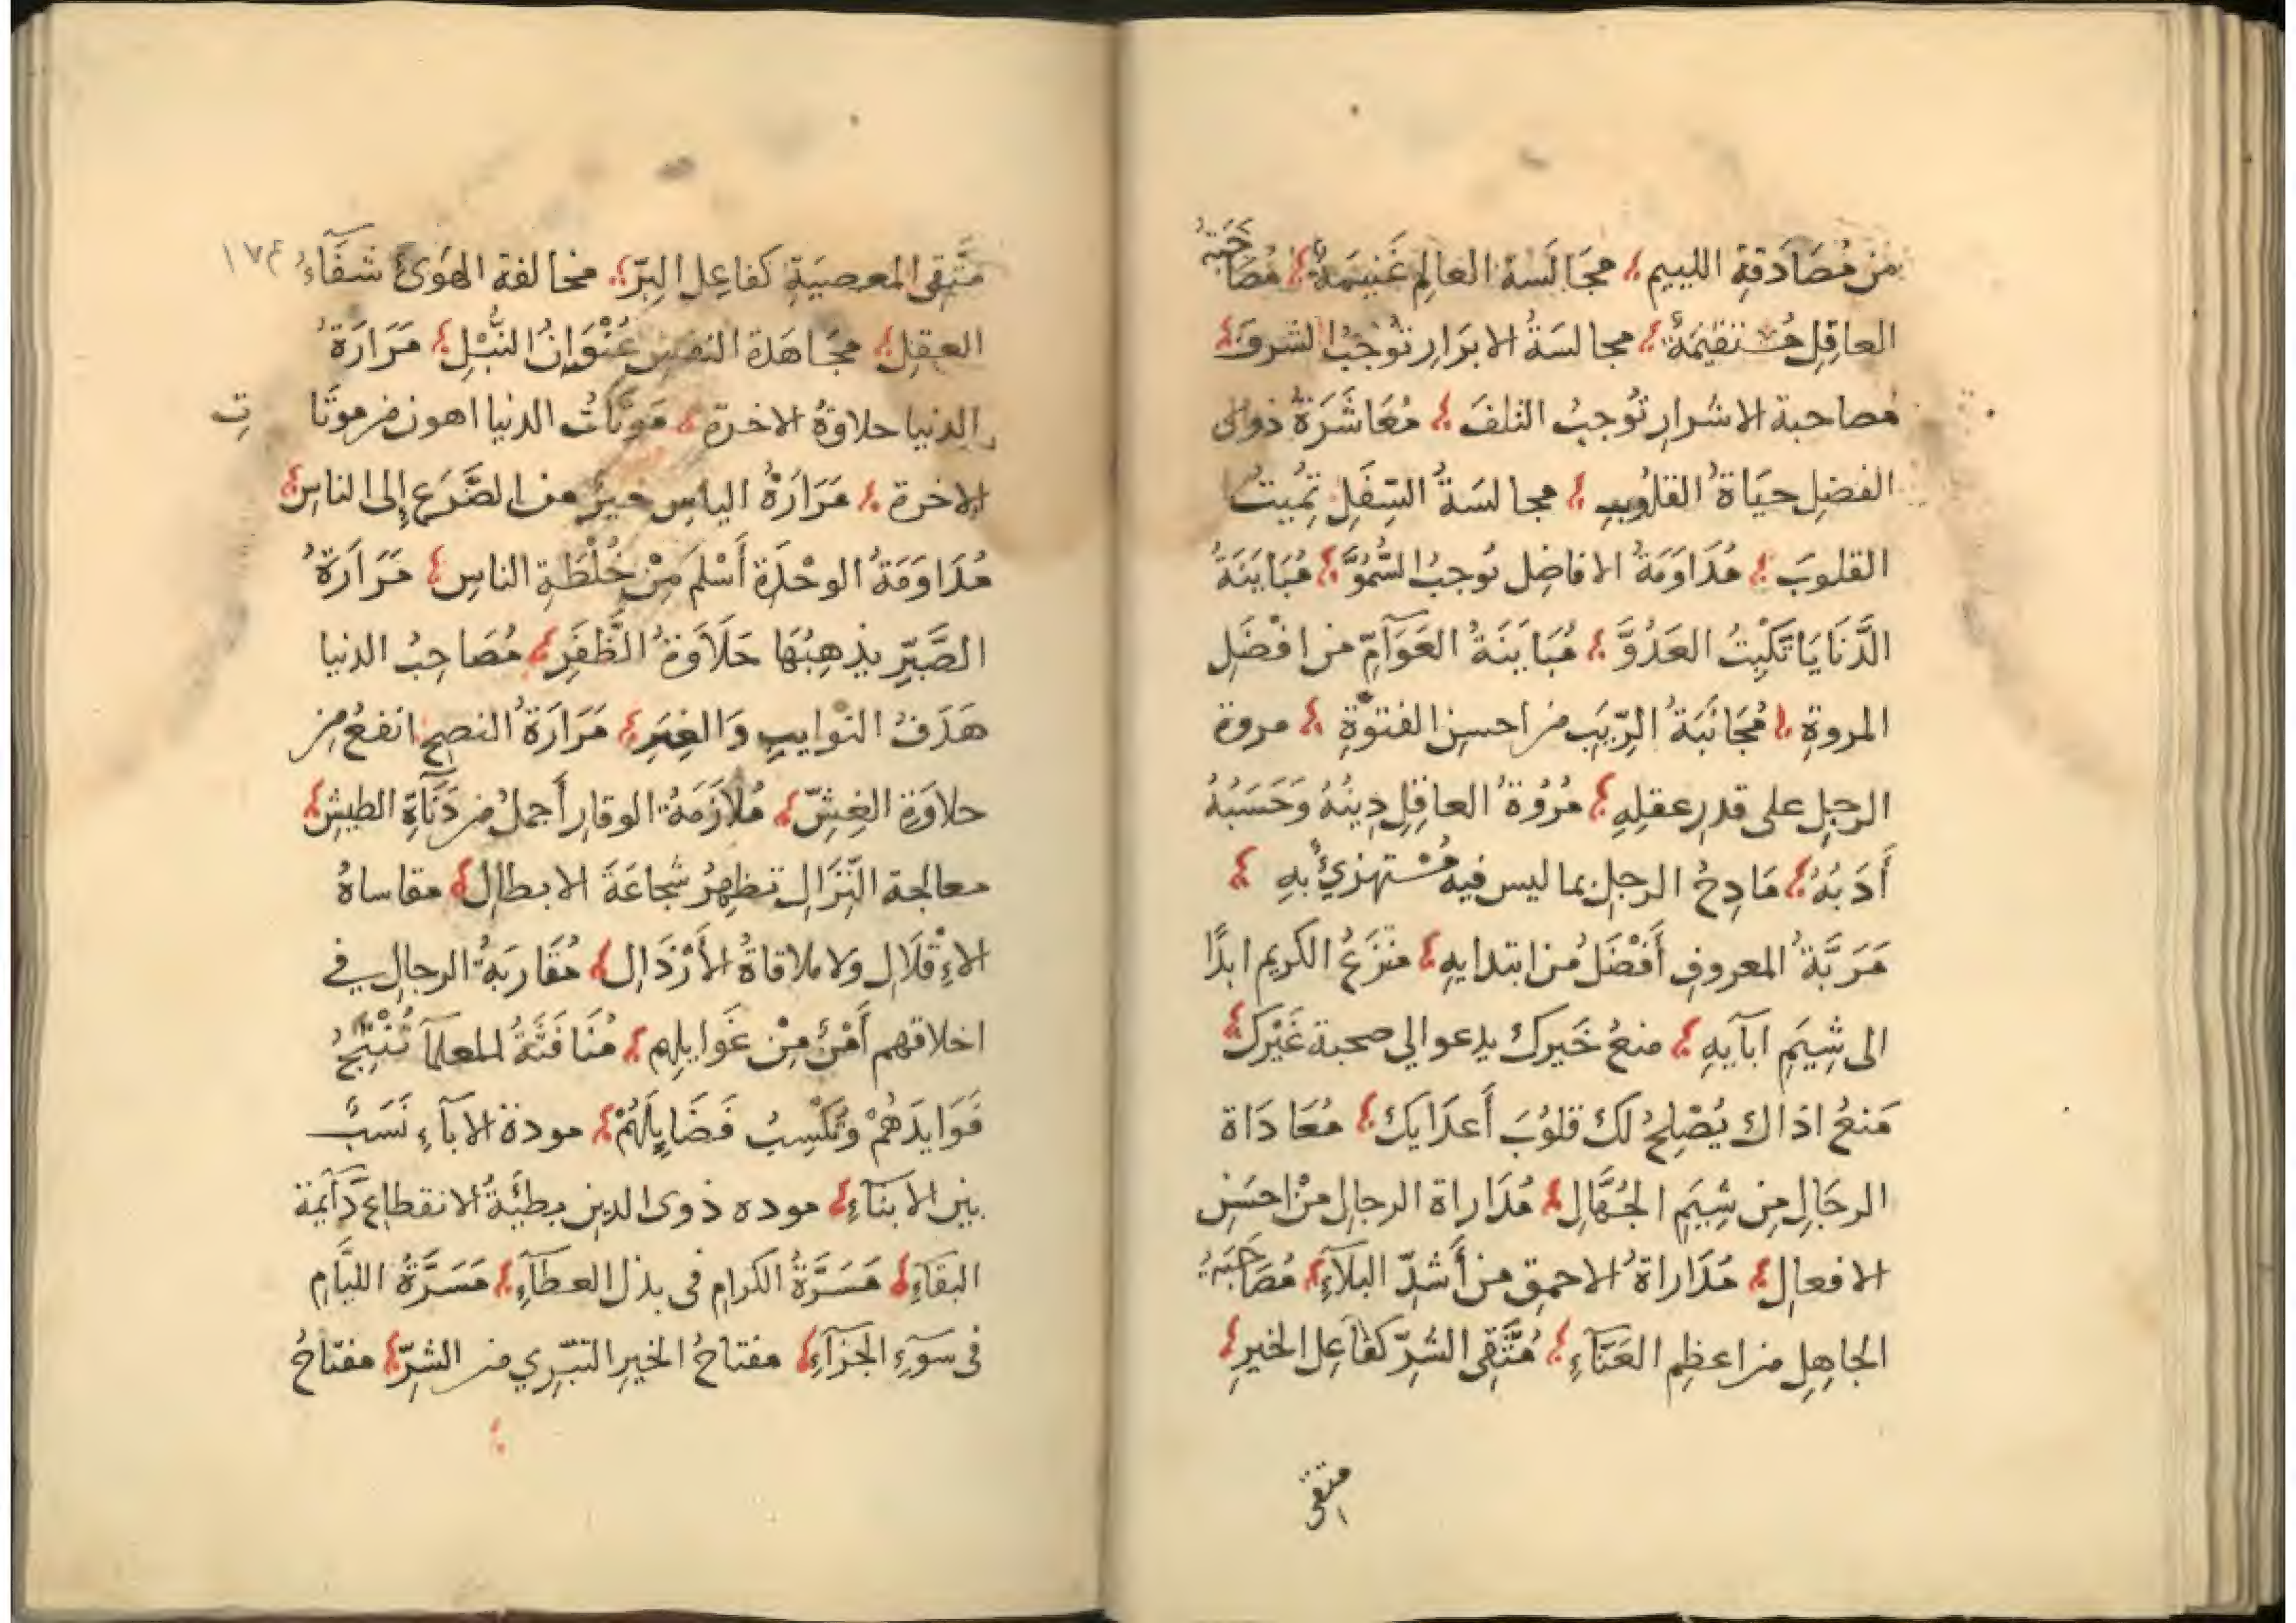 من مُصَادَقةِ اللييمِ مجَالَسَة العالِم غَنيمَةٌ مُصَاحَبَةُ
العاقِلِ مُستقيمَةٌ مجالسَةُ الابرَارِ تُوجبُ الشرفَ
مصاحبة الاشرارِ تُوجبُ التلفَ مُعَاشَرَةُ ذوى
الفضلِ حيَاةُ القلُوبِ مجالسَةُ السِّفَلِ تُمِيتُ
القلوبَ مُدَاوَمَةُ الافاضِل تُوجبُ السُّمُوَّ مُبَايَنَةُ
الدَّنَايَا تَكْبِتُ العَدُوَّ مُبَايَنَةُ العَوَآمِّ من افْضَلِ
المروةِ مُجَانَبَةُ الرِّيَبِ من احسنِ الفتوَّةِ مروة
الرجلِ على قدرِ عقلِهِ مُرُوةُ العاقِلِ دِينُهُ وَحَسَبُهُ
أَدَبُهُ مَادِحُ الرجلِ بما ليس فيه مُسْتهزئٌ بهِ
مَرَبَّةُ المعروفِ أَفْضَلُ من ابتدايهِ منزَعُ الكريم ابدًا
الى شِيَمِ ابآيهِ منعُ خَيرك يدعوالي صحبة غَيْرَكَ
مَنعُ اذاك يُصْلِحُ لكَ قلوُبَ أَعدَايكَ مُعَادَاة
الرجَالِ مِن شِيَمِ الجُهَّالِ مُدَاراة الرجالِ مِنْ احسَنِ
الافعالِ مُدَاراةُ الاحمقِ من أَشدِّ البَلآءِ مُصَاحَبَةُ
الجاهِلِ من اعظمِ العَنَآءِ مُتَّقِى الشرِّ كفاعِلِ الخيرِ
متقى
١٧٤
متَّقِى المعصيَةِ كفاعِلِ البِرِّ مخالفة الهَوَىٰ شفَآءُ
العقلِ مجَاهَدة النفسِ عُنْوَانُ النُّبْلِ مَرَارَةُ
الدنيا حلاوَةُ الاخرةِ مَوتَاتُ الدنيا اهون من موتَا
تِ
الاخرة مَرَارَةُ الياسِ خيرٌ من الضَّرَعِ إلى الناسِ
مُدَاوَمَةُ الوحْدَةِ أَسْلم مِنْ خُلْطَةِ الناسِ مَرَارَةُ
الصَّبرِ يذهِبُهَا حَلَاوَةُ الظَّفَرِ مُصَاحِبُ الدنيا
هَدَفُ النوايبِ وَالغِيَرِ مَرَارَةُ النصحِ انفعُ من
حلاوَةِ الغِشِّ مُلَازَمَةُ الوقارِ أَجملُ من دَنآَءَةِ الطيشِ
معالجة النِّزَالِ تظهِرُ شجاعَةَ الابطالِ مقاساةُ
الاءِقْلَالِ ولا ملاقاةُ الأَرْذَالِ مُقَارَبَةُ الرجالِ في
اخلاقهم أَمْنٌ مِنْ غَوايلِهم مُنَافَثَةُ المعلمآ تُنْتِجُ
فَوَايدَهُمْ وتُكْسِبُ فَضَايِلَهُمْ مودة الابآءِ نَسَبٌ
بين الابنَآءِ موده ذوى الدينِ بطيَّةُ الانقطاعِ دَآيمة
البقآءِ مَسَرَّةُ الكرامِ فى بذل العطآءِ مَسَرَّةُ الليَامِ
فى سوَءِ الجزَآءِ مفتاحُ الخيرِ التبَرِّي من الشرِّ مفتاحُ